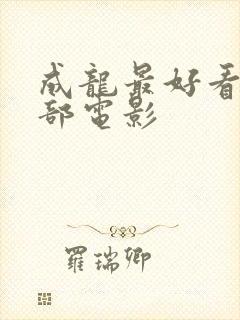 成龍最好看
部電影
羅瑞卿